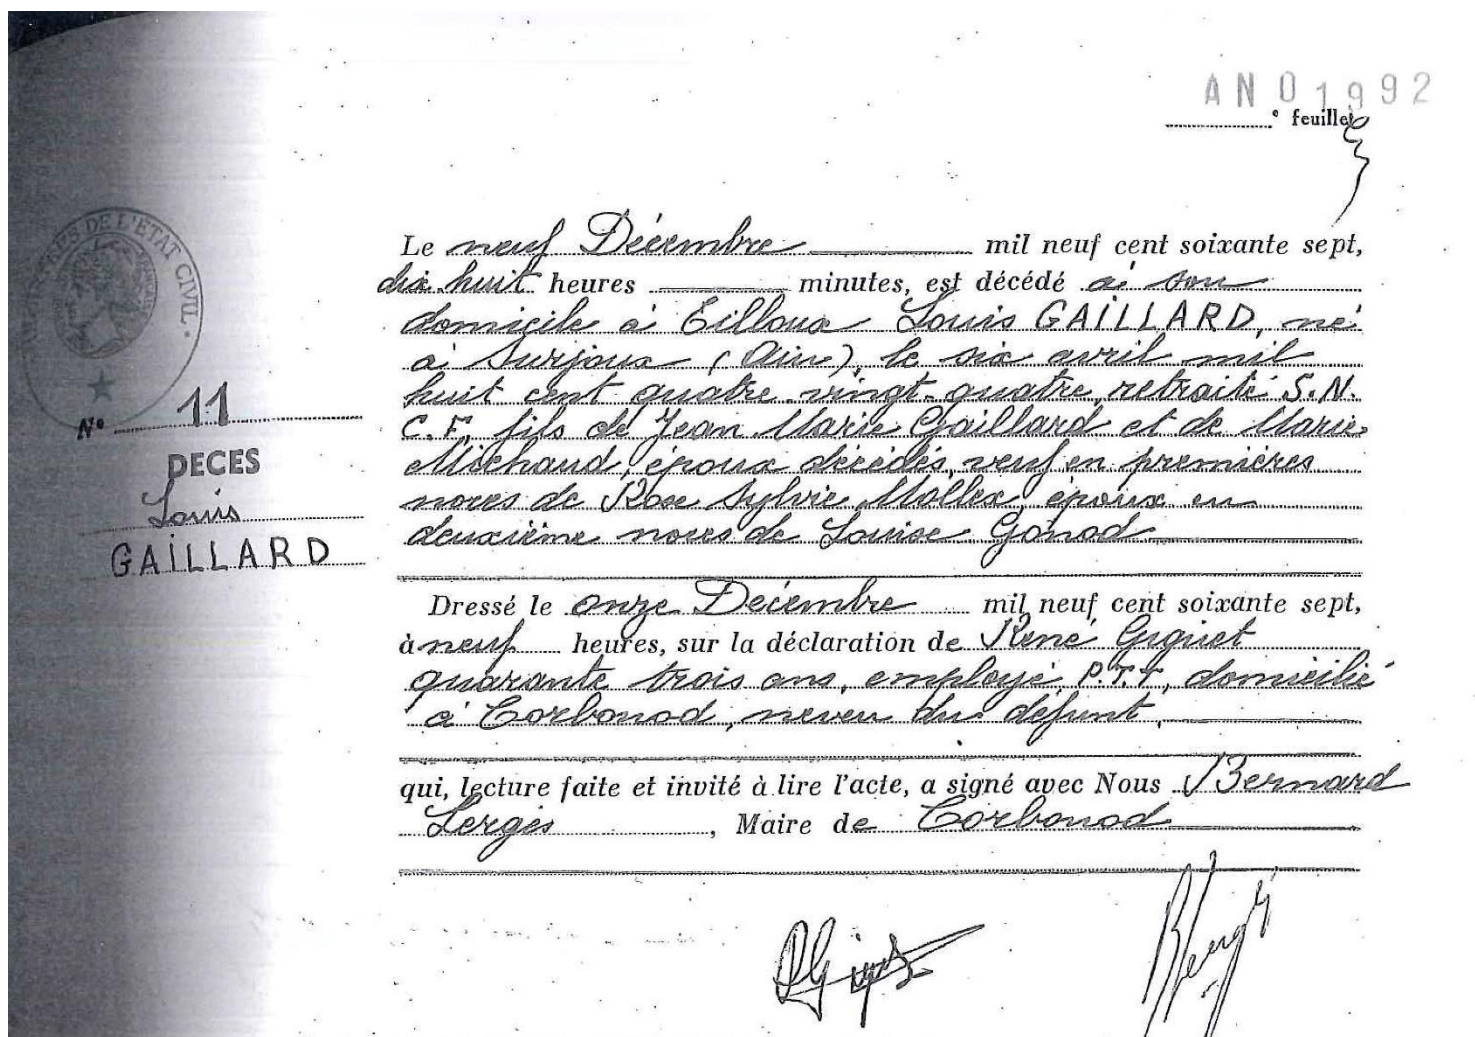 AN 0 1992
° feuillet
Le neuf Décembre mil neuf cent soixante sept,
dix huit heures minutes, est décédé à son
domicile à Eilloux Louis GAILLARD, né
à Surjoux (Ain), le six avril mil
huit cent quatre-vingt-quatre, retraité S.N.
C.F, fils de Jean Marie Gaillard et de Marie
Michaud, époux décédés, veuf en premières
noces de Rose Sylvie Mollex, époux en
deuxième noces de Louise Gonod
DE L'ÉTAT CIVIL
N° 11
DECES
Louis
GAILLARD
Dressé le onze Décembre mil neuf cent soixante sept,
à neuf heures, sur la déclaration de René Giguet
quarante trois ans, employé P.T.T, domicilié
à Corbonod, neveu du défunt,
qui, lecture faite et invité à lire l'acte, a signé avec Nous Bernard
Lergès, Maire de Corbonod